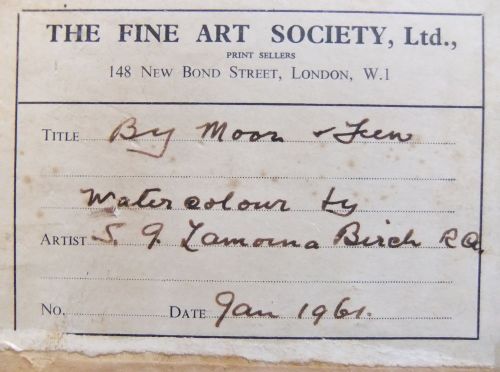 THE FINE ART SOCIETY, Ltd.,
PRINT SELLERS
148 NEW BOND STREET, LONDON, W.1
TITLE By Moor & Fen
Watercolour by
ARTIST S. J. Lamorna Birch R.A.
No. DATE Jan 1961.